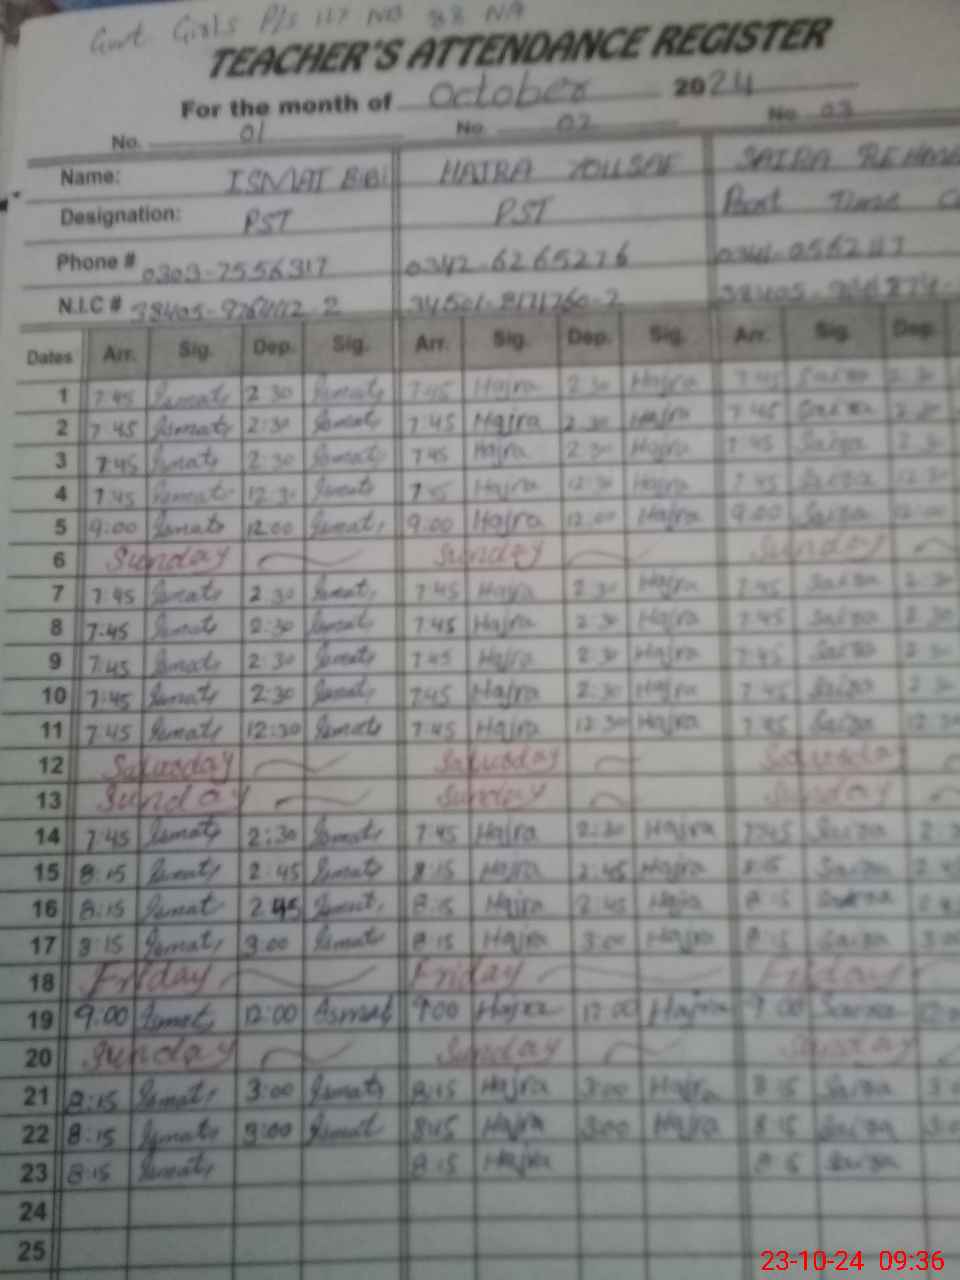 Govt Girls P/s 117 NB 88 NA
TEACHER'S ATTENDANCE REGISTER
For the month of October 2024
No. 01 No. 02 No. 03
Name: ISMAT BiBi HAJRA YOUSAF SAIRA
Designation: PST PST Part Time
Phone # 0303-7556317 0342-6265276
N.I.C #
Dates Arr. Sig. Dep. Sig. Arr. Sig. Dep. Sig. Arr. Sig. Dep.
1 7:45 Ismat 2:30 Ismat 7:45 Hajra 2:30 Hajra 7:45 Saira 2:30
2 7:45 Ismat 2:30 Ismat 7:45 Hajra 2:30 Hajra 7:45 Saira 2:30
3 7:45 Ismat 2:30 Ismat 7:45 Hajra 2:30 Hajra 7:45 Saira 2:3
4 7:45 Ismat 12:30 Ismat Hajra 12:30 Hajra 7:45 Saira 12:30
5 9:00 Ismat 12:00 Ismat 9:00 Hajra 12:00 Hajra 9:00 Saira 12:00
6 Sunday Sunday Sunday
7 7:45 Ismat 2:30 Ismat 7:45 Hajra 2:30 Hajra 7:45 Saira 2:30
8 7:45 Ismat 2:30 Ismat 7:45 Hajra 2:30 Hajra 7:45 Saira 2:30
9 7:45 Ismat 2:30 Ismat 7:45 Hajra 2:30 Hajra 7:45 Saira 2:30
10 7:45 Ismat 2:30 Ismat 7:45 Hajra 2:30 Hajra 7:45 Saira 2:30
11 7:45 Ismat 12:30 Ismat 7:45 Hajra 12:30 Hajra 7:45 Saira 12:30
12 Saturday Saturday Saturday
13 Sunday Sunday Sunday
14 7:45 Ismat 2:30 Ismat 7:45 Hajra 2:30 Hajra 7:45 Saira 2:3
15 8:15 Ismat 2:45 Ismat 8:15 Hajra 2:45 Hajra 8:15 Saira 2:4
16 8:15 Ismat 2:45 Ismat 8:15 Hajra 2:45 Hajra 8:15 Saira
17 8:15 Ismat 3:00 Ismat 8:15 Hajra 3:00 Hajra 8:15 Saira 3:00
18 Friday Friday Friday
19 9:00 Ismat 12:00 Asmat 9:00 Hajra 12:00 Hajra 9:00 Saira 12:00
20 Sunday Sunday Sunday
21 8:15 Ismat 3:00 Ismat 8:15 Hajra 3:00 Hajra 8:15 Saira 3:0
22 8:15 Ismat 3:00 Ismat 8:15 Hajra 3:00 Hajra 8:15 Saira 3:0
23 8:15 Ismat 8:15 Hajra 8:15 Saira
24
25
23-10-24 09:36